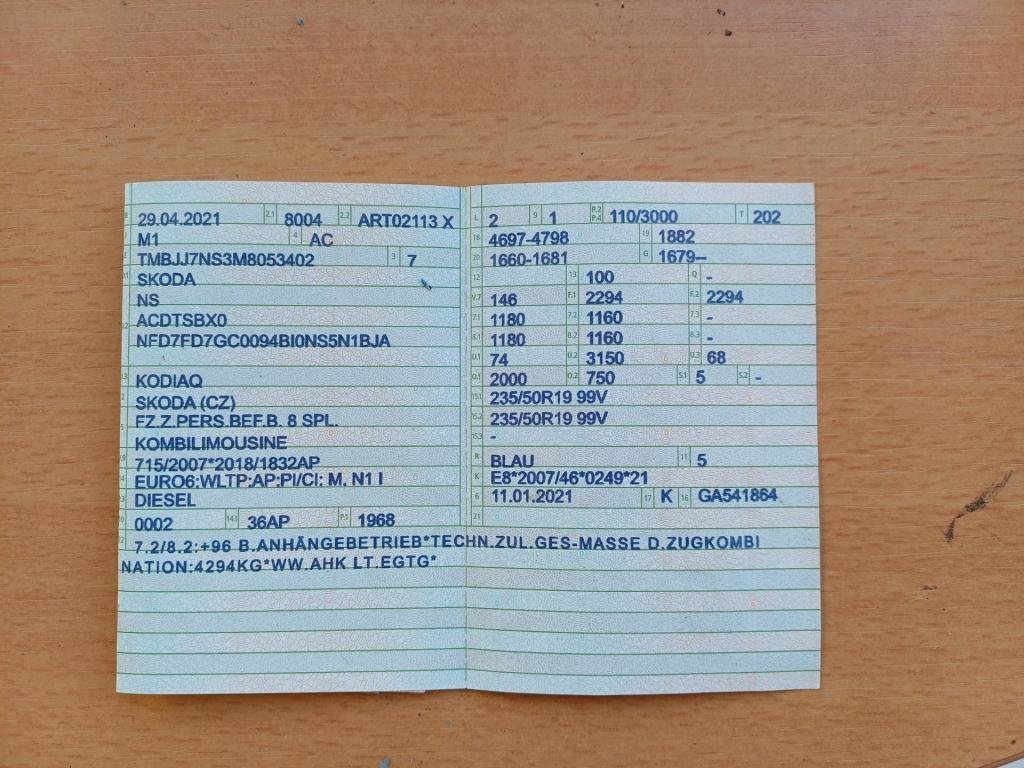 29.04.2021 2.1 8004 2.2 ART02113 X
M1 4 AC
TMBJJ7NS3M8053402 3 7
SKODA
NS
ACDTSBX0
NFD7FD7GC0094BI0NS5N1BJA
KODIAQ
SKODA (CZ)
FZ.Z.PERS.BEF.B. 8 SPL.
KOMBILIMOUSINE
715/2007*2018/1832AP
EURO6;WLTP;AP;PI/CI; M, N1 I
DIESEL
0002 14.1 36AP P.1 1968
L 2 9 1 P.2 P.4 110/3000 T 202
18 4697-4798 19 1882
20 1660-1681 G 1679--
12 13 100 Q -
V.7 146 F.1 2294 F.2 2294
7.1 1180 7.2 1160 7.3 -
8.1 1180 8.2 1160 8.3 -
U.1 74 U.2 3150 U.3 68
O.1 2000 O.2 750 S.1 5 S.2 -
15.1 235/50R19 99V
15.2 235/50R19 99V
15.3 -
R BLAU 11 5
K E8*2007/46*0249*21
6 11.01.2021 17 K 16 GA541864
21
7.2/8.2:+96 B.ANHÄNGEBETRIEB*TECHN.ZUL.GES-MASSE D.ZUGKOMBI
NATION:4294KG*WW.AHK LT.EGTG*